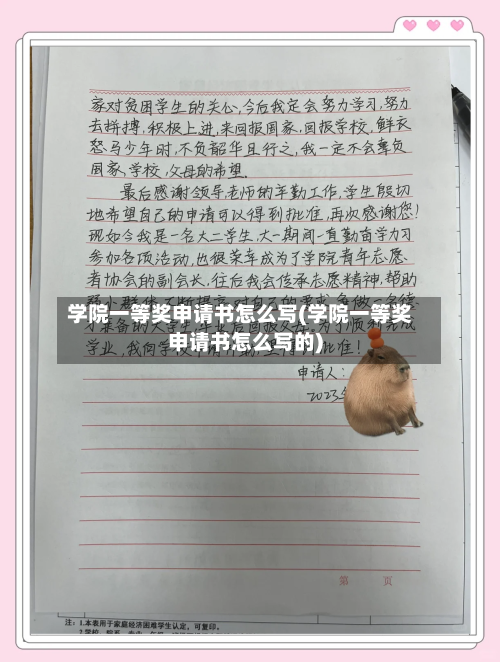 家对贫困学生的关心,今后我定会努力学习,努力
去拼搏,积极上进,来回报国家,回报学校,鲜衣
怒马少年时,不负韶华且行之,我一定不会辜负
国家,学校,父母的希望.
最后感谢领导,老师的辛勤工作,学生殷切
地希望自己的申请可以得到批准,再次感谢您!
现如今我是一名大二学生,大一期间一直勤奋学习
参加各项活动,也很荣幸成为了学院青年志愿
者协会的副会长,往后我会传承志愿精神,帮助
学院一等奖申请书怎么写(学院一等奖
申请书怎么写的)
学业,我向学
批准!
申请人:
2023
第 页
注: 1.本表用于家庭经济困难学生认定,可复印。